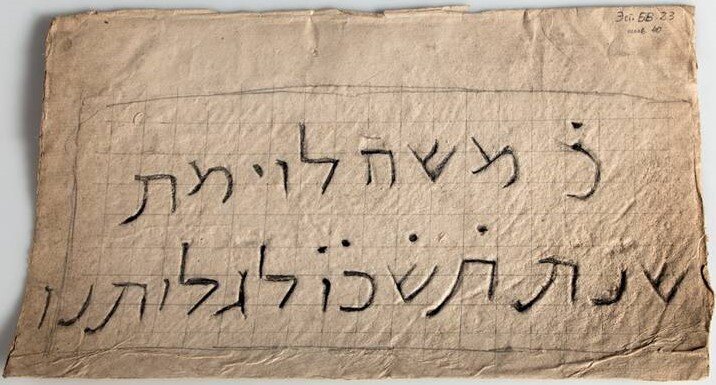 Эст. БВ. 23
инв 40
כ̇ משה לוי מת
שנת ת̇ש̇כ̇ו̇ לגלותנו